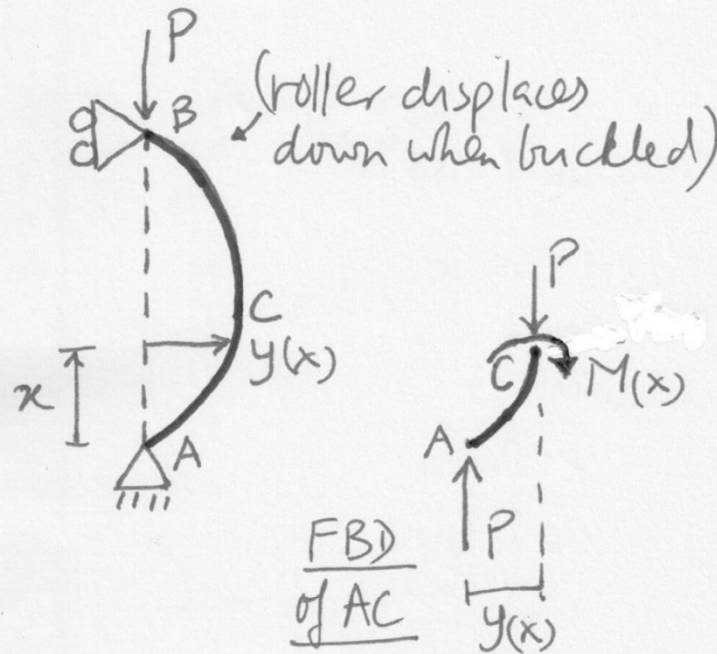 P
B
(roller displaces
down when buckled)
C
y(x)
x
A
P
C
M(x)
A
P
FBD
of AC
y(x)